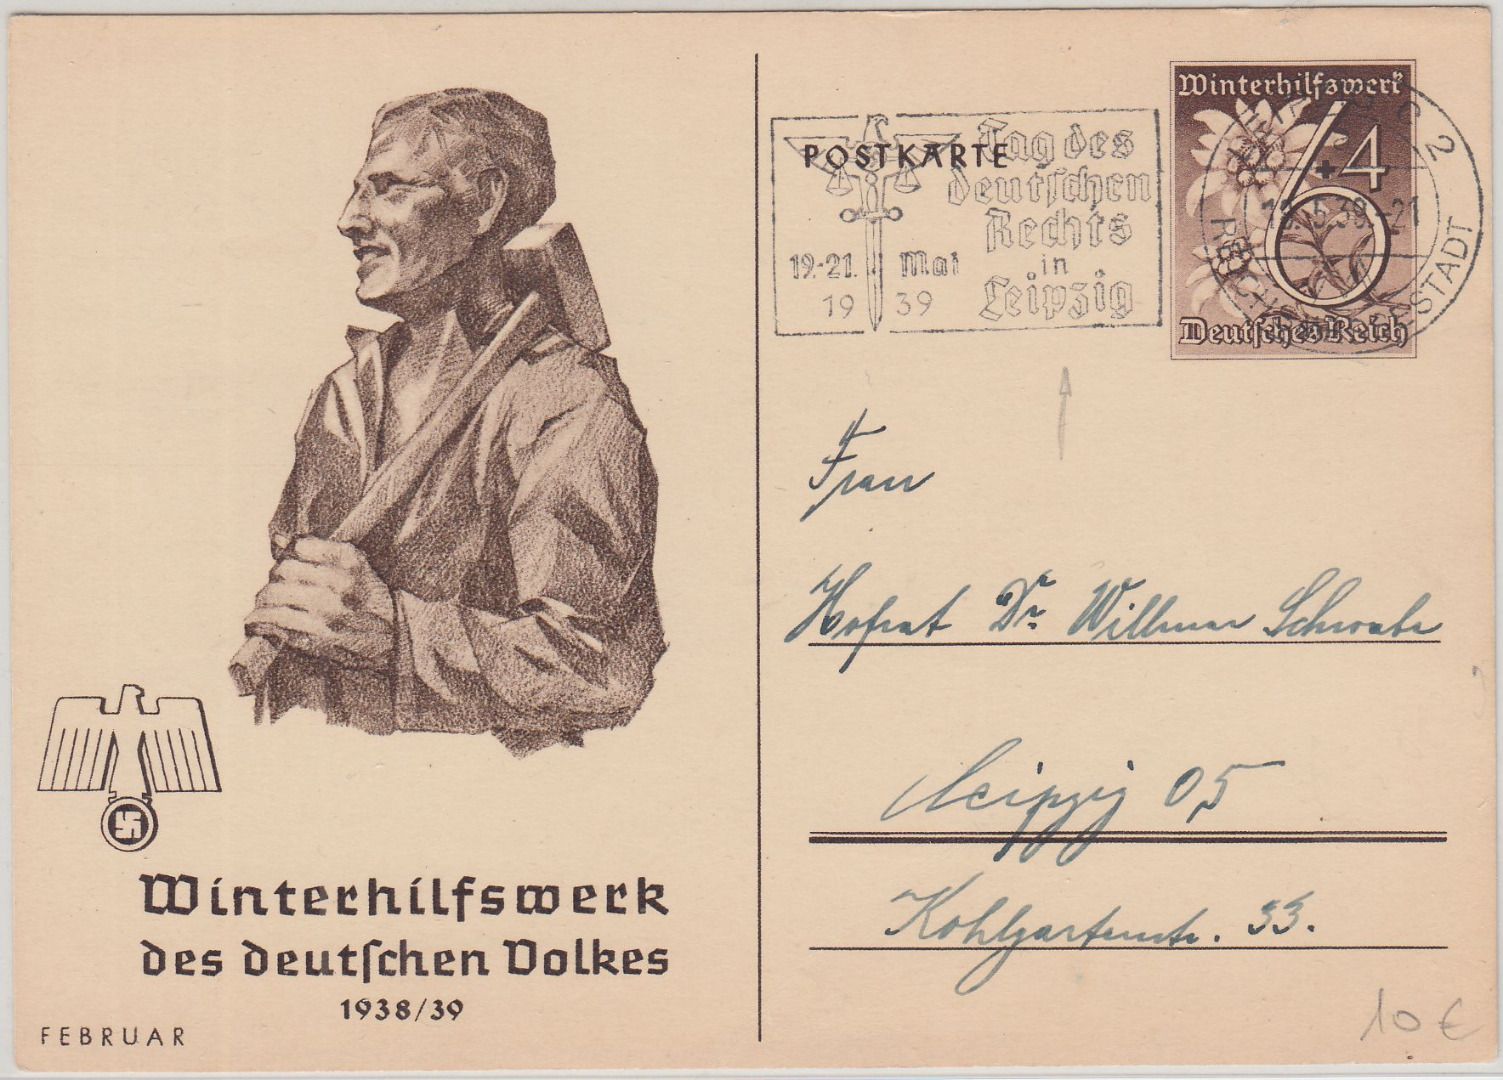 Winterhilfswerk
des deutschen Volkes
1938/39
FEBRUAR
POSTKARTE
Tag des
deutschen
Rechts
in
Leipzig
19.-21. Mai
1939
Winterhilfswerk
6+4
Deutsches Reich
2
Frau
Hofrat Dr. Willmar Schwabe
Leipzig O5
Kohlgartenstr. 33.
10 €